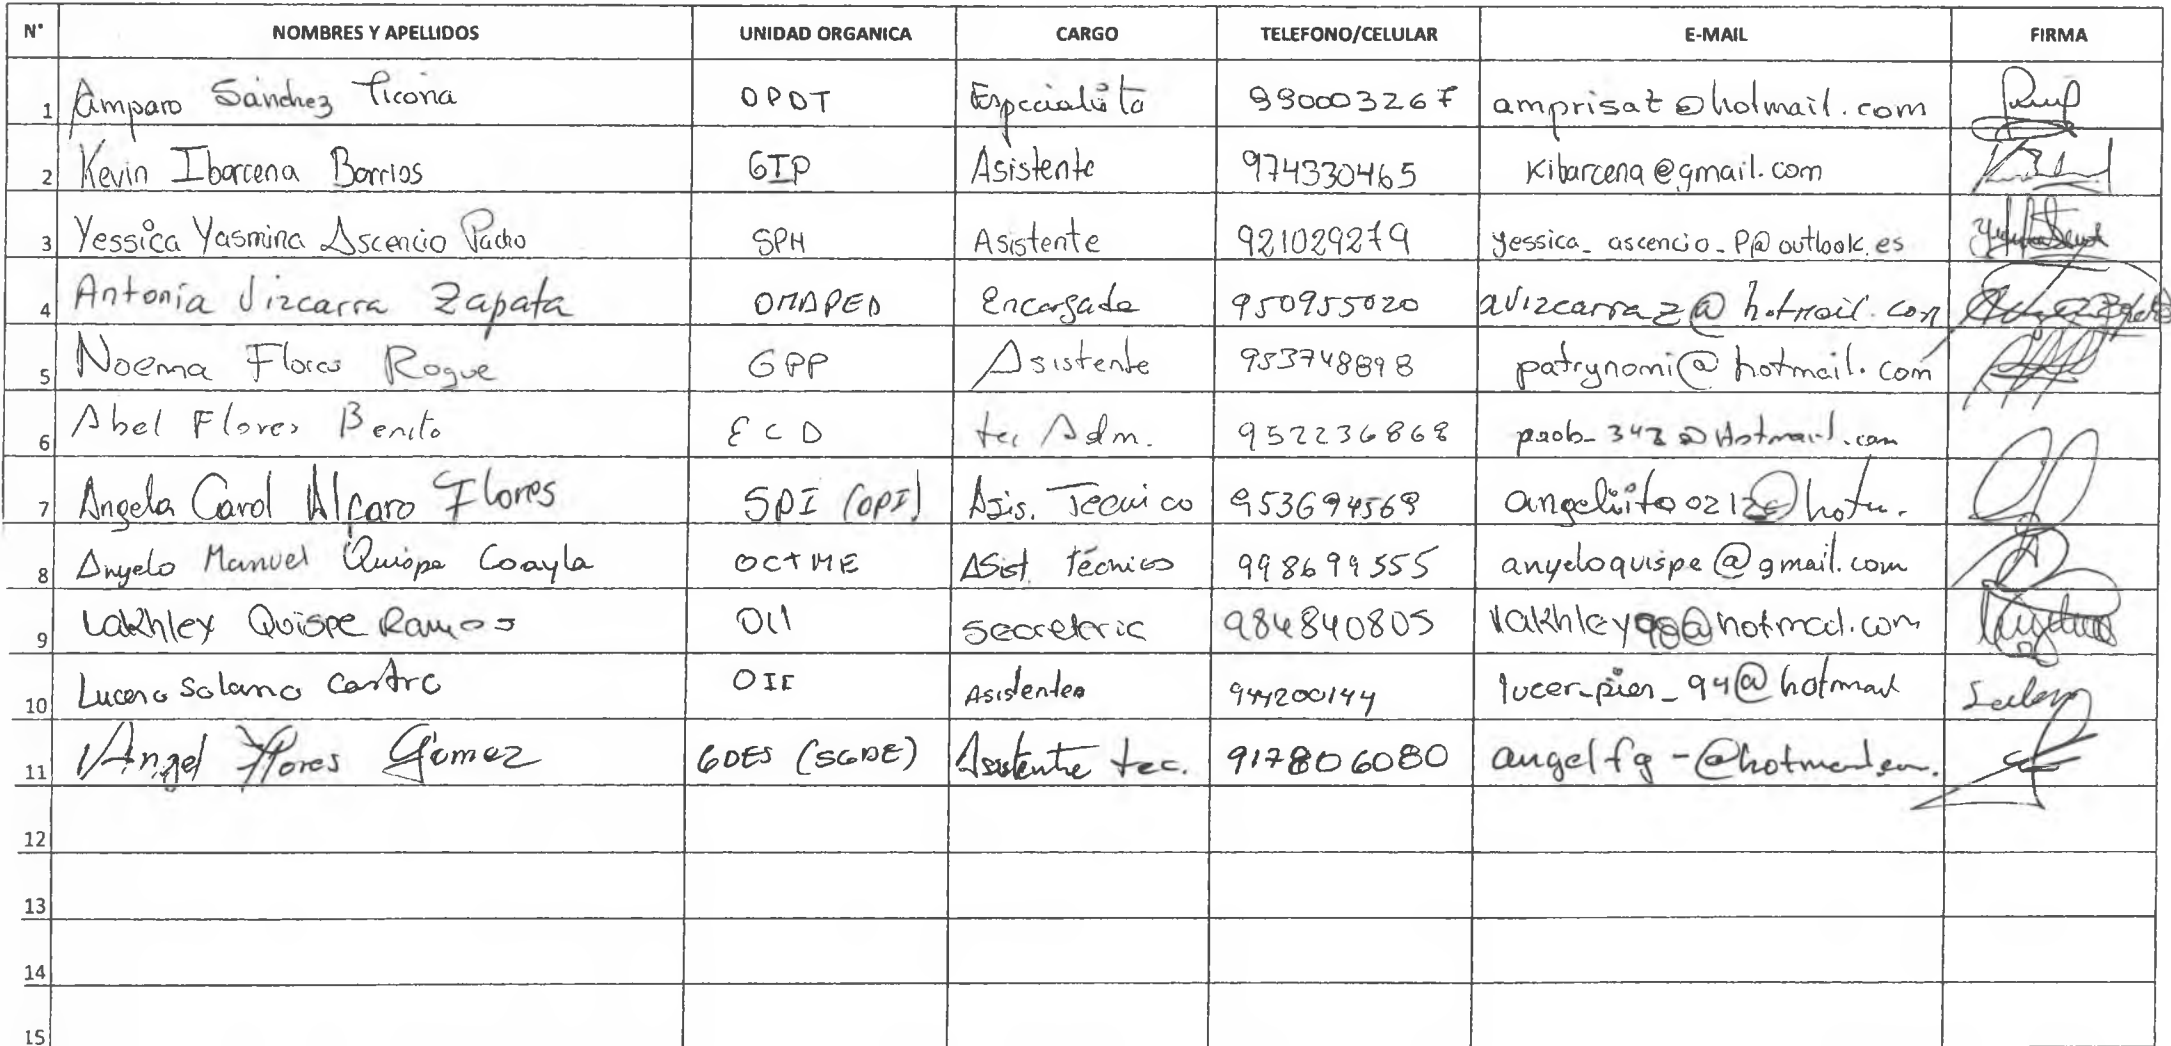 N° NOMBRES Y APELLIDOS UNIDAD ORGANICA CARGO TELEFONO/CELULAR E-MAIL FIRMA
1 Amparo Sánchez Ticona OPDT Especialista 990003267 amprisat@hotmail.com
2 Kevin Ibarcena Barrios GIP Asistente 974330465 Kibarcena@gmail.com
3 Yessica Yasmina Ascencio Pacho SPH Asistente 921029279 yessica_ascencio_P@outlook.es
4 Antonia Vizcarra Zapata OMAPED Encargada 950955020 avizcarraz@hotmail.com
5 Noema Flores Roque GPP Asistente 953748898 patrynomi@hotmail.com
6 Abel Flores Benito ECD tec Adm. 952236868
7 Angela Carol Alfaro Flores SPI (OPI) Asis. Tecnico 953694569
8 Anyelo Manuel Quispe Coayla OCTME ASist. técnico 998699555 anyeloquispe@gmail.com
9 Vakhley Quispe Ramos secretaria 984840805 Vakhley98@hotmail.com
10 Lucero Solano Castro OII Asistente 944200144
11 Angel Flores Gómez GDES (SGDE) Asistente tec. 917806080
12
13
14
15